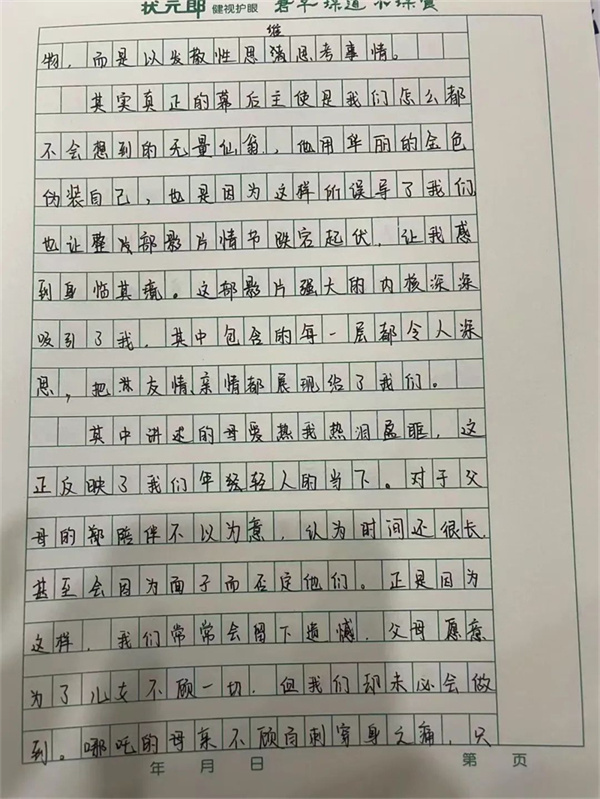 状元郎 健视护眼
维
物，而是以发散性思消思考事情。
其实真正的幕后主使是我们怎么都
不会想到的无量仙翁，他用华丽的金色
伪装自己，也是因为这样所误导了我们
也让整部影片情节跌宕起伏，让我感
到身临其境。这部影片强大的内核深深
吸引了我，其中包含的每一层都令人深
思，把友情亲情都展现给了我们。
其中讲述的母爱热我热泪盈眶，这
正反映了我们年轻人的当下。对于父
母的陪伴不以为意，认为时间还很长，
甚至会因为面子而否定他们。正是因为
这样，我们常常会留下遗憾，父母愿意
为了儿女不顾一切，但我们却未必会做
到。哪吒的母亲不顾百刺穿身之痛，只
年 月 日 第 页